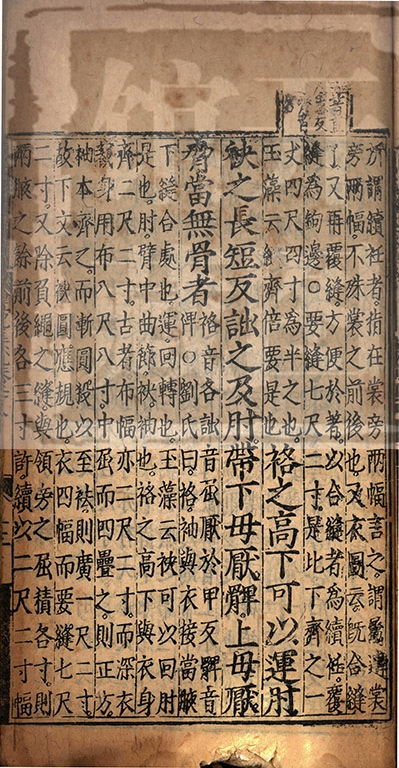 所謂續衽者指在裳旁兩幅言之謂屬連裳
旁兩幅不殊裳之前後也又衣圖云既合縫
了又再覆縫方便於著以合縫者為續衽覆
縫為鉤邊○要縫七尺二寸是比下齊之一
丈四尺四寸為半之也
玉藻云縫齊倍要是也
袼之高下可以運肘
袂之長短反詘之及肘帶下毋厭髀上毋厭
脅當無骨者
袼音各詘音屈厭於甲反髀音
陛○劉氏曰袼袖與衣接當腋
下縫合處也運回轉也玉藻云袂可以回肘
是也肘臂中曲節袂袖也袼之高下與衣身
齊二尺二寸古者布幅亦二尺二寸而深衣
裁身用布八尺八寸中屈而四疊之則正方
袖本齊之而漸圓殺以至袪則廣一尺二寸
故下文云袂圓應規也衣四幅而要縫七尺
二寸又除負繩之縫與領旁之屈積各寸則
兩腋之餘前後各三寸許續以二尺二寸幅